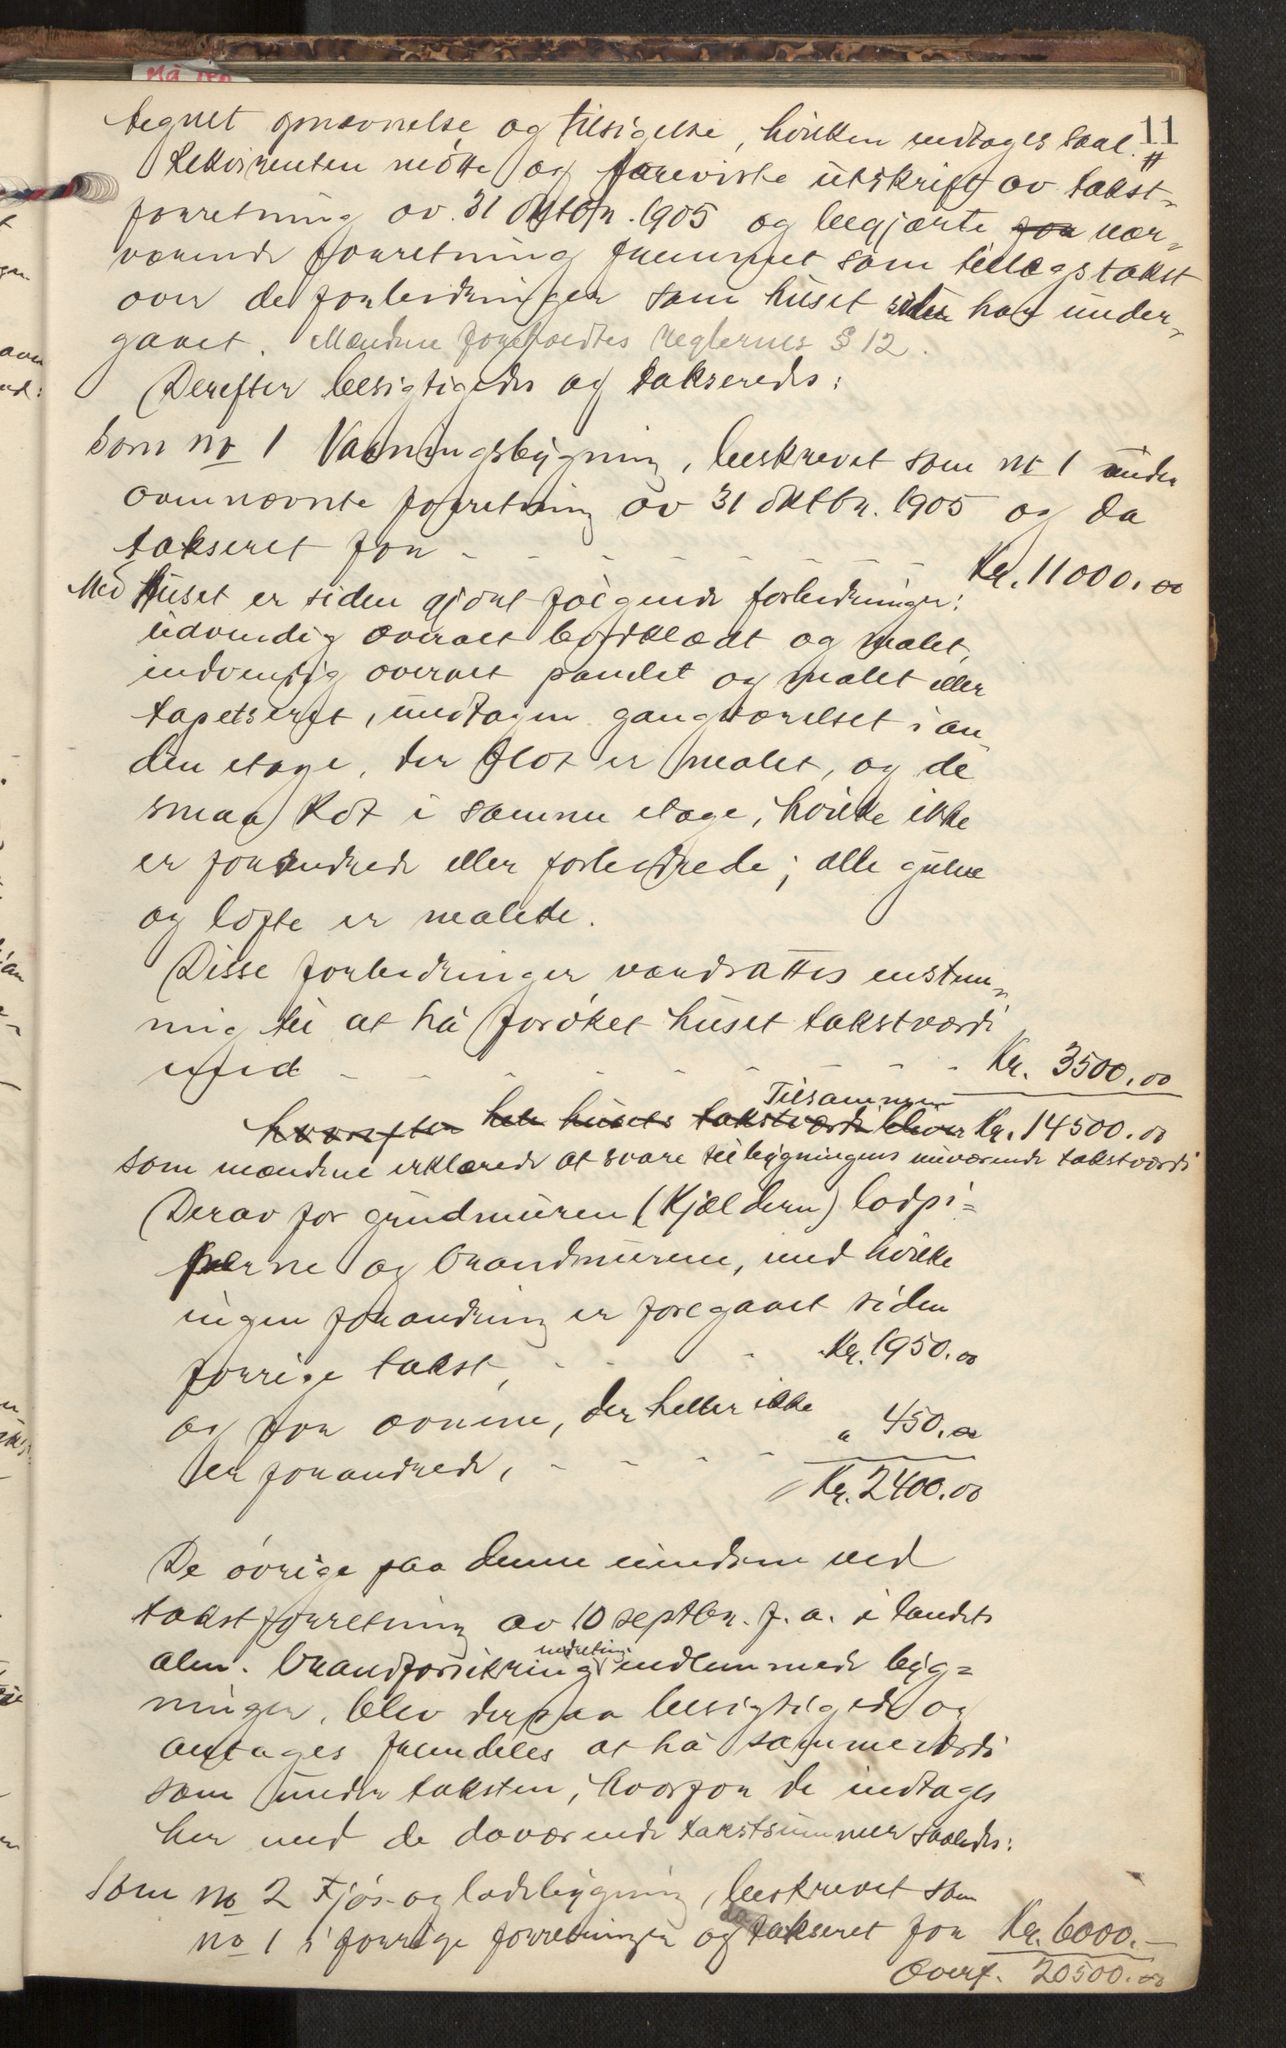 11
tegnet opnævnelse og tilsigelse, hvilken indtages saal. #
Rekvirenten mötte og foreviste utskrift av takst-
forretning av 31 oktbr. 1905 og begjærte for nær-
værende forretning fremmet som tillægstakst
over de forbedringer som huset siden har under-
gaaet. Mændene foreholdtes reglernes § 12.
Derefter besigtigedes og taksertes:
Som no 1 Vaaningsbygning, beskrevet som no 1 under
ovennævnte forretning av 31 oktbr. 1905 og da
takseret for - - - - - - Kr. 11000.00
Med Huset er siden gjort fölgende forbedringer:
udvendig overalt bordklædt og malet,
indvendig overalt panelet og malet eller
tapetseret, undtagen gangværelset i an-
den etage, der blot er malet, og de
smaa Kot i samme etage, hvilke ikke
er forandrede eller forbedrede; alle gulve
og lofte er malede.
Disse forbedringer værdsattes enstem-
mig til at ha forøket huset takstværdi
med - - - - - - Kr. 3500.00
Tilsammen
hvorefter hele husets takstværdi bliver Kr. 14500.00
som mændene erklærede at svare til bygningens nuværende takstværdi
Derav for grundmuren (Kjælderen) lodpi-
perne og brandmurene, med hvilke
ingen forandring er foregaaet siden
forrige takst, - - - Kr. 1950.00
og for ovnene, der heller ikke
er forandrede, - - - - " 450.00
Kr. 2400.00
De övrige paa denne eiendom ved
takstforretning av 10 septbr. f. a. i landets
alm. brandforsikrings indlemmede byg-
ninger, blev derpaa besigtigede og
antages fremdeles at ha samme værdi
som under taksten, hvorfor de indtages
her med de daværende takstsummer saaledes:
Som no 2 Fjös- og ladebygning, beskrevet som
no 1 i forrige forretningen og da takseret for Kr. 6000.—
Overf. 20500.00